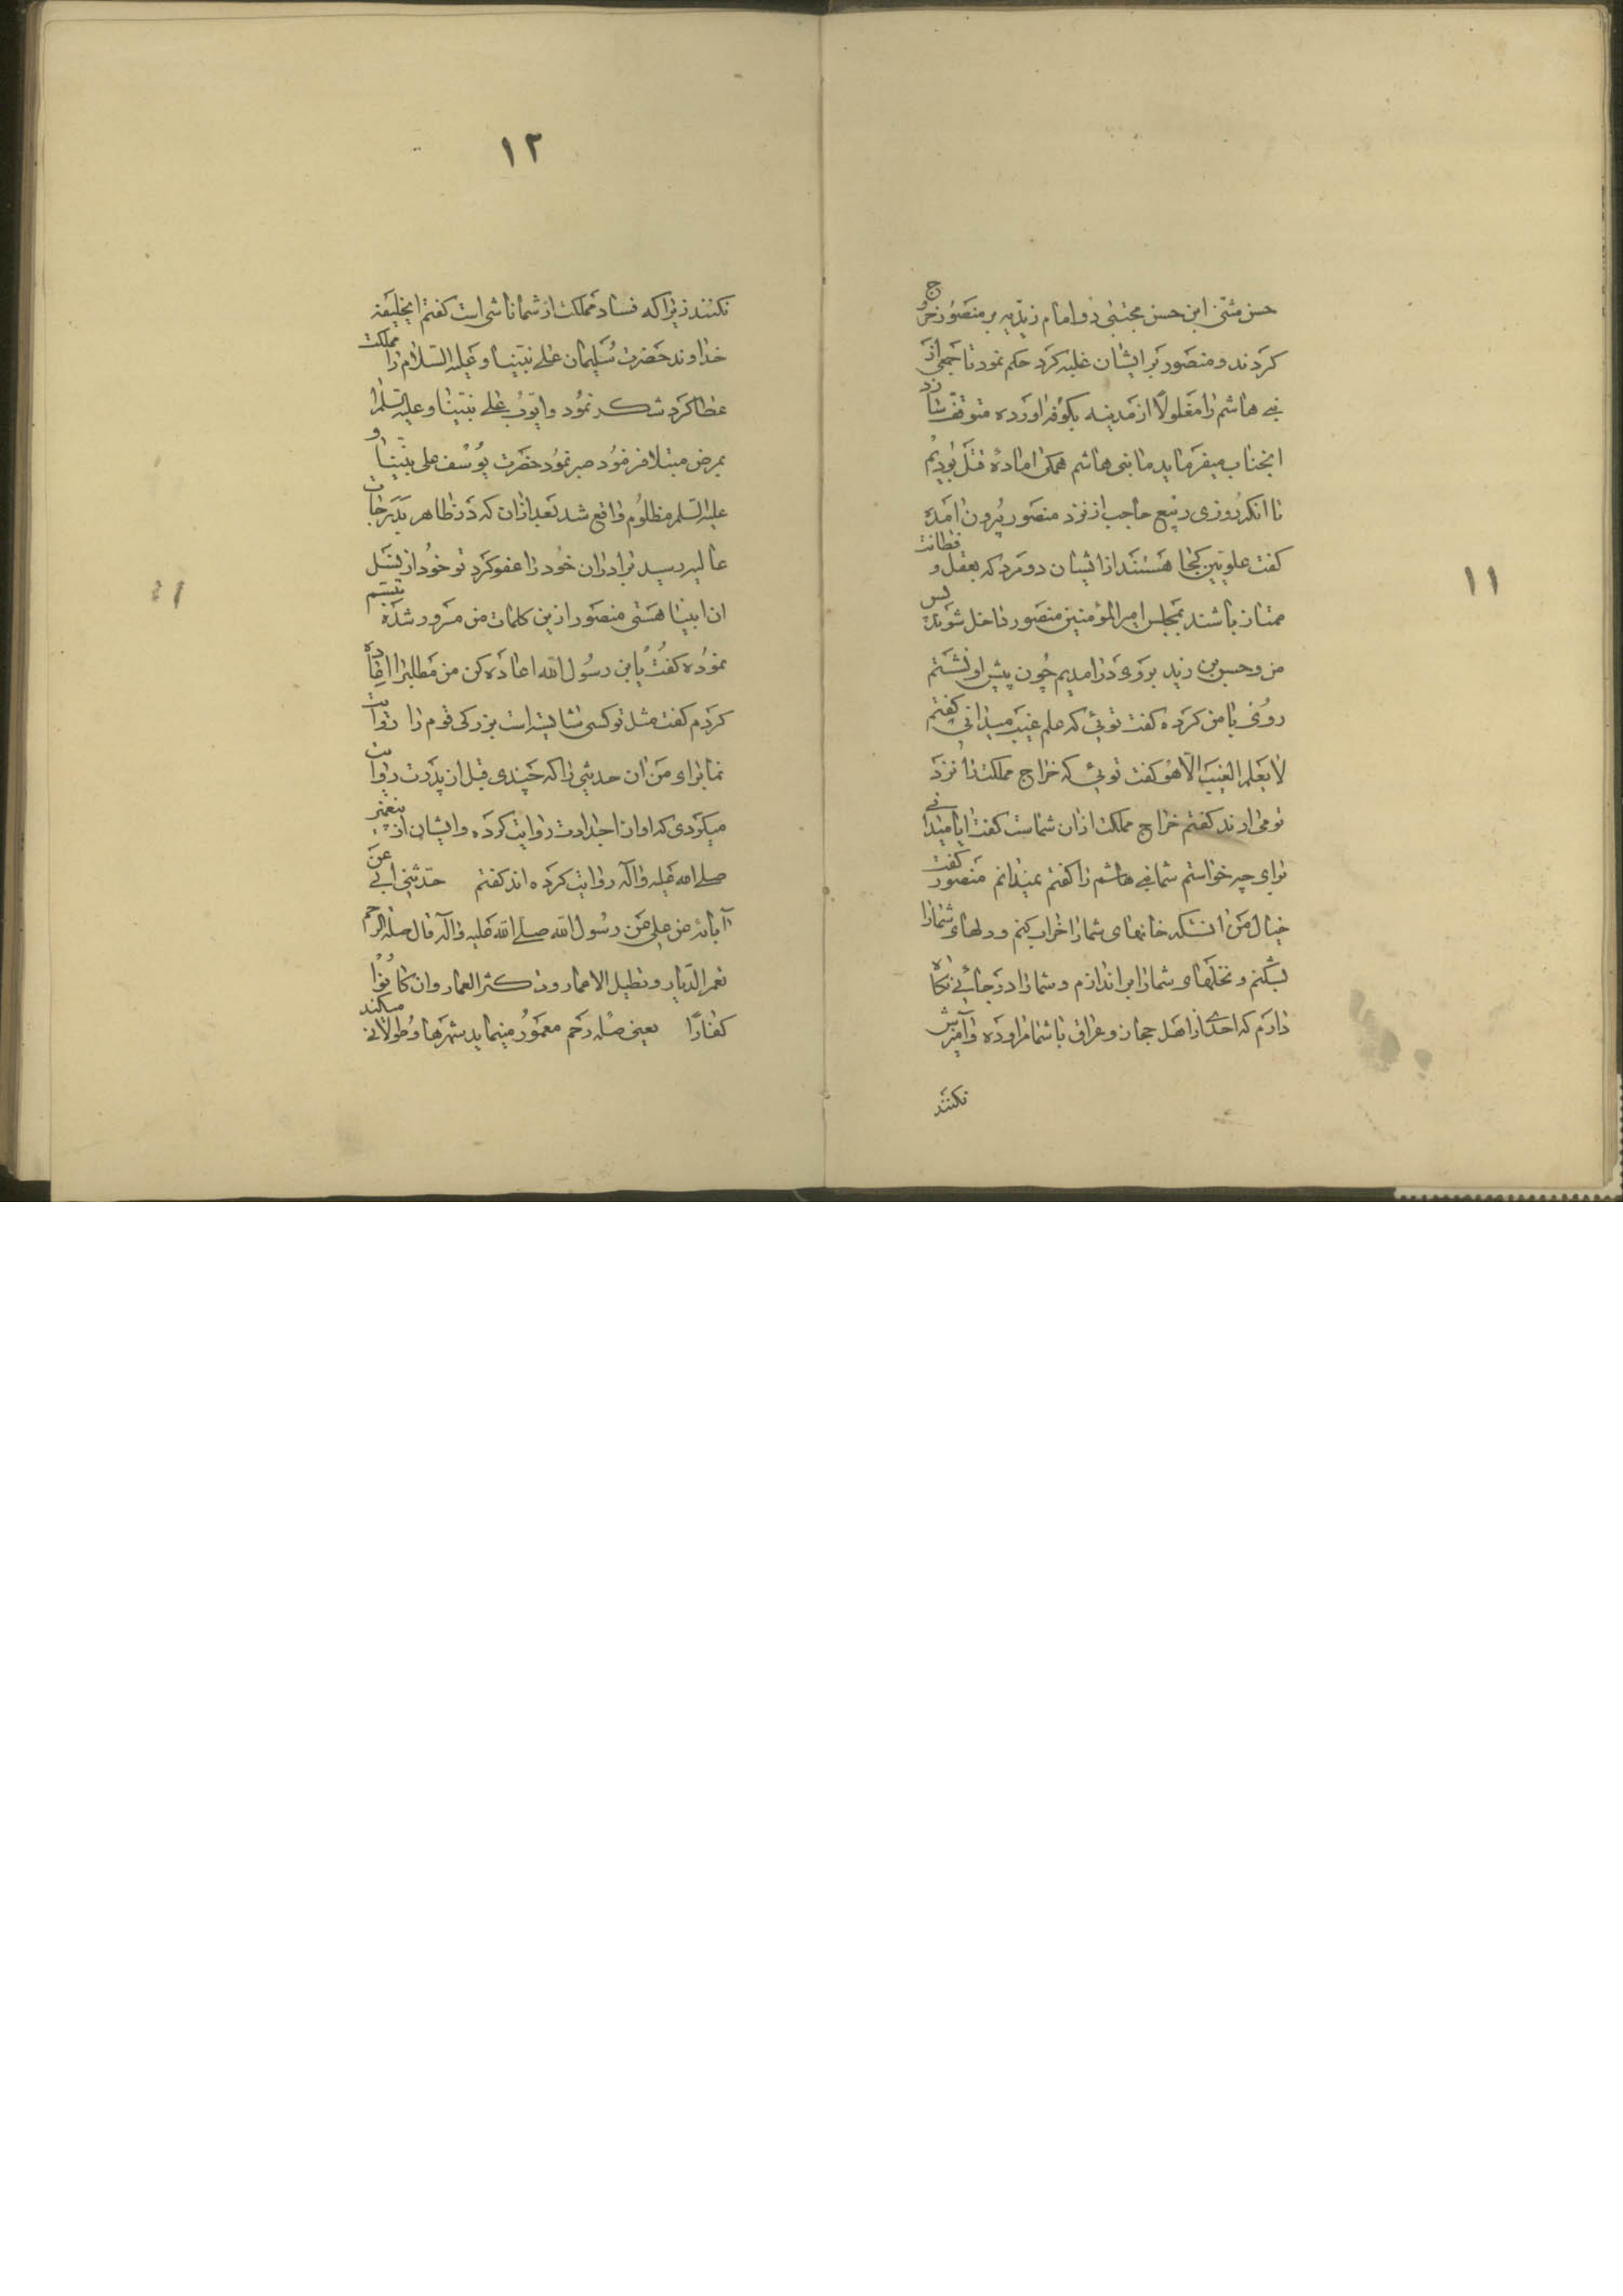 ١١
حسن مثنی ابن حسن مجتبی دو امام زیدیه بر منصور خروج
کردند و منصور بر ایشان غلبه کرد حکم نمود تا جمعی از
بنی هاشم را مغلولاً از مدینه بکوفه اورده متوقف سازد
انجناب میفرماید ما بنی هاشم همکی اماده قتل بودیم
تا انکه روزی ربیع حاجب از نزد منصور بیرون امده
کفت علویین کجا هستند از ایشان دو مرد که بعقل و فطانت
ممتاز باشند بمجلس امیر المؤمنین منصور داخل شوند پس
من و حسن بن زید بر وی درامدیم چون پیش او نشستم
روی با من کرده کفت توئی که علم غیب میدانی کفتم
لا یعلم الغیب الا هو کفت توئی که خراج مملکت را نزد
تو می ارند کفتم خراج مملکت از ان شماست کفت ایا میدانی
برای چه خواستم شما بنی هاشم را کفتم نمیدانم منصور کفت
خیال من انستکه خانهای شما را خراب کنم و دلهای شما را
بشکنم و نخلهای شما را بر اندازم و شما را در جائی نکاه
دارم که احدی از اهل حجاز و عراق با شما مراوده و آمیزش
نکنند
١٢
نکنند زیرا که فساد مملکت از شما ناشی است کفتم ایخلیفه
خداوند حضرت سلیمان علی نبینا و علیه السلام را مملکت
عطا کرد شکر نمود و ایوب علی نبینا و علیه السلم را
بمرض مبتلا فرمود صبر نمود حضرت یوسف علی نبینا و
علیه السلم مظلوم واقع شد بعد از ان که در ظاهر بدرجات
عالیه رسید برادران خود را عفو کرد تو خود از نسل
ان ابنیا هستی منصور ازین کلمات من مسرور شده تبسم
نموده کفت یابن رسول الله اعاده کن من مطلب را افاده
کردم کفت مثل تو کسی شایسته است بزرکی قوم را روایت
نما برای من ان حدیثی را که چندی قبل از پدرت روایت
میکردی که او از اجدادت روایت کرده و ایشان از پیغمبر
صلی الله علیه و اله روایت کرده اند کفتم حدثنی ابی عن
آبائه عن علی عن رسول الله صلی الله علیه و اله قال صلة الرحم
تعمر الدیار و تطیل الاعمار و ان کثر العمار و ان کانوا
کفارًا یعنی صله رحم معمور مینماید شهرها و طولانی میکند